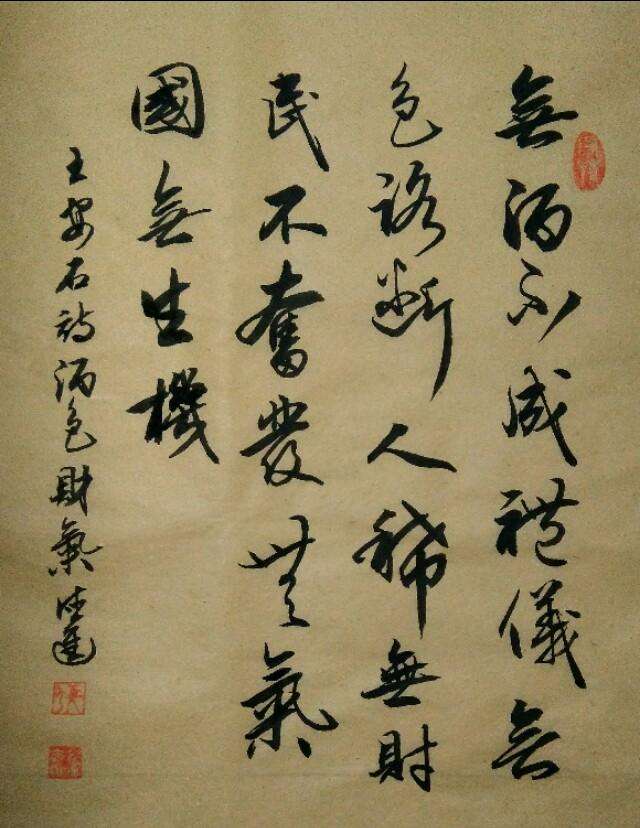 無酒不成禮儀無
色路斷人稀無財
民不奮發無氣
國無生機
王安石詩酒色財氣